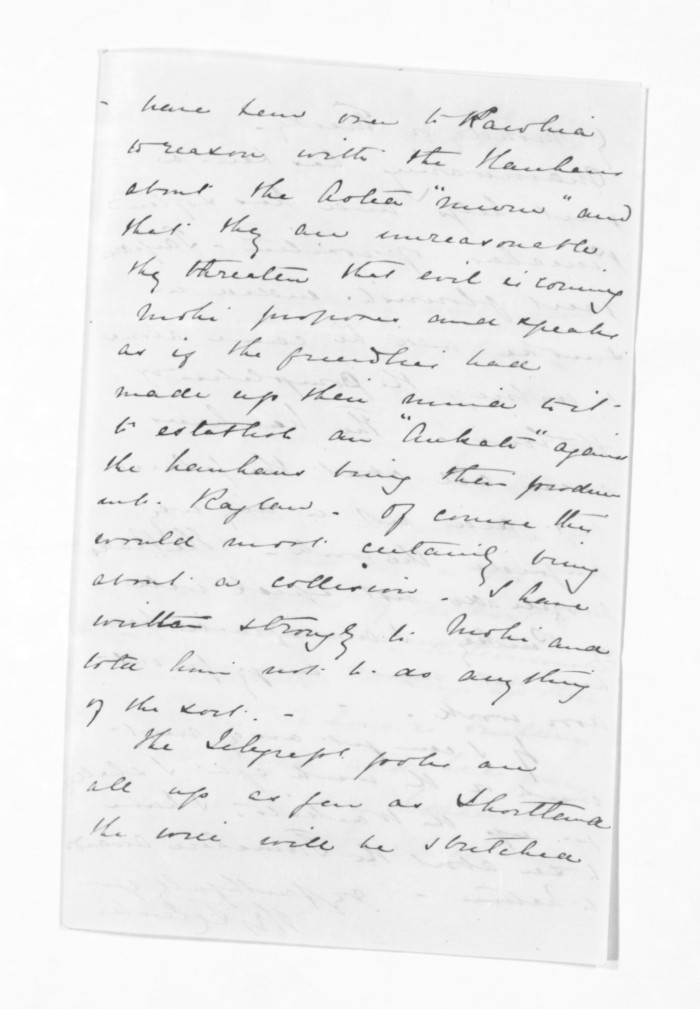 - have been over to Kawhia
to reason with the Hauhaus
about the Aotea "" and
that they are unreasonable
they threaten that evil is coming
Mohi proposes and speaks
as if the friendlies had
made up their mind to
to establish an "Aukati" against
the hauhaus bring their produce
into Raglan - Of course this
would most certainly bring
about a collision - I have
written strongly to Mohi and
told him not to do anything
of the sort. -
The Telegraph poles are
all up as far as Shortland
the wire will be stretched